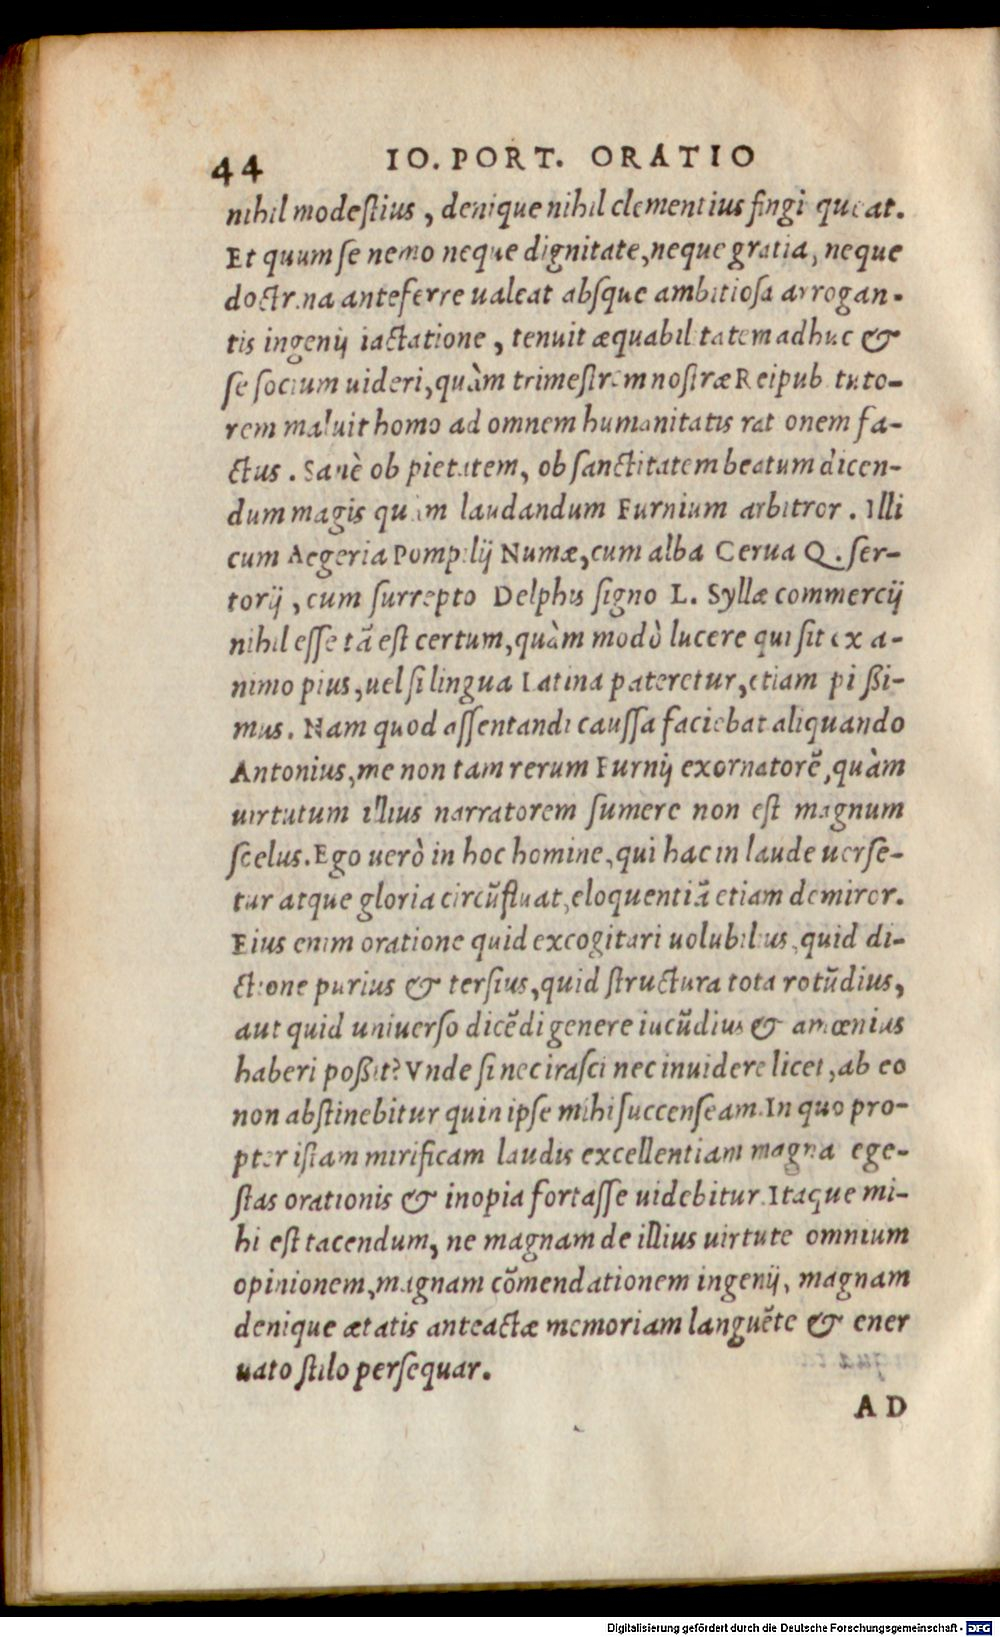 44 IO. PORT. ORATIO
nihil modeſtius, denique nihil clementius fingi queat.
Et quum ſe nemo neque dignitate, neque gratia, neque
doctrina anteferre ualeat abſque ambitioſa arrogan-
tis ingenij iactatione, tenuit æquabilitatem adhuc &
ſe ſocium uideri, quàm trimeſtrem noſtræ Reipub. tuto-
rem maluit homo ad omnem humanitatis rationem fa-
ctus. Sanè ob pietatem, ob ſanctitatem beatum dicen-
dum magis quàm laudandum Furnium arbitror. Illi
cum Aegeria Pompilij Numæ, cum alba Cerua Q. ſer-
torij, cum ſurrepto Delphis ſigno L. Syllæ commercij
nihil eſſe tā eſt certum, quàm modò lucere qui ſit ex a-
nimo pius, uel ſi lingua Latina pateretur, etiam pijßi-
mus. Nam quod aſſentandi cauſſa faciebat aliquando
Antonius, me non tam rerum Furnij exornatorē, quàm
uirtutum illius narratorem ſumere non eſt magnum
ſcelus. Ego uerò in hoc homine, qui hac in laude uerſe-
tur atque gloria circūfluat, eloquentiā etiam demiror.
Eius enim oratione quid excogitari uolubilius, quid di-
ctione purius & terſius, quid ſtructura tota rotūdius,
aut quid uniuerſo dicēdi genere iucūdius & amœnius
haberi poßit? Vnde ſi nec iraſci nec inuidere licet, ab eo
non abſtinebitur quin ipſe mihi ſuccenſeam. In quo pro-
pter iſtam mirificam laudis excellentiam magna ege-
ſtas orationis & inopia fortaſſe uidebitur. Itaque mi-
hi eſt tacendum, ne magnam de illius uirtute omnium
opinionem, magnam cōmendationem ingenij, magnam
denique ætatis anteactæ memoriam languēte & ener
uato ſtilo perſequar.
AD
Digitalisierung gefördert durch die Deutsche Forschungsgemeinschaft - DFG